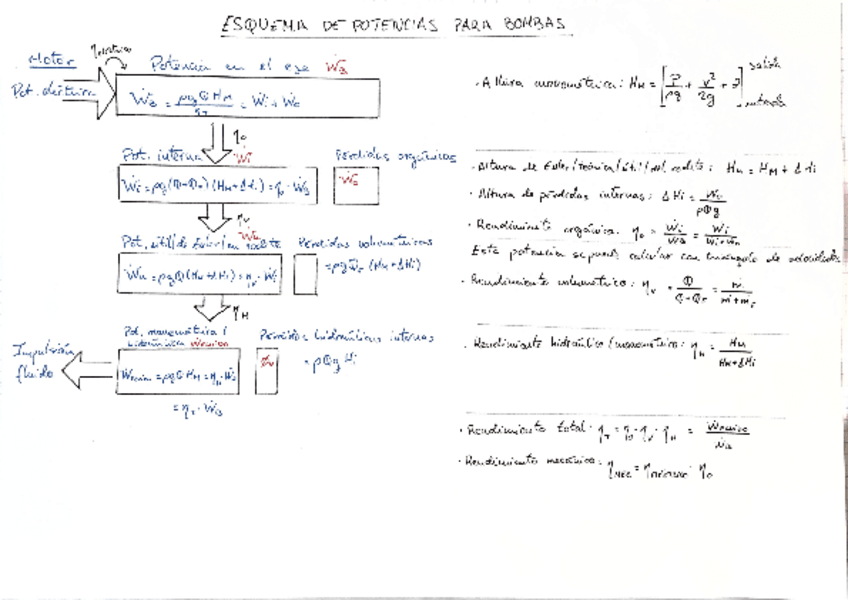 ESQUEMA DE POTENCIAS PARA BOMBAS
Motor
Pot. eléctrica
Potencia en el eje Ẇa
Ẇa = ρgQHm/ηT = Ẇi + Ẇo
ηo
Pot. interna Ẇi
Pérdidas orgánicas
Ẇi = ρg(Q+Qr)(Hm+ΔHi) = ηo · Ẇa
Ẇo
ηv
Ẇu
Pot. útil/de Euler/en rodete
Pérdidas volumétricas
Ẇu = ρgQ(Hm+ΔHi) = ηv · Ẇi
= ρgQr (Hm+ΔHi)
ηH
Pot. manométrica /
hidráulica
Pérdidas hidráulicas internas
Impulsión
fluido
= ρgQHm = ηH · Ẇu
= ρQg Hi
= ηT · Ẇa
· Altura manométrica: Hm = [P/ρg + v²/2g + z] salida entrada
· Altura de Euler/teórica/útil/del rodete: Hu = Hm + ΔHi
· Altura de pérdidas internas: ΔHi = /ρQg
· Rendimiento orgánico: ηo = Ẇi/Ẇa = Ẇi/Ẇi+Ẇo
Esta potencia se puede calcular con triángulo de velocidades
· Rendimiento volumétrico: ηv = Q/Q+Qr = ṁ/ṁ+ṁr
· Rendimiento hidráulico/manométrico: ηH = Hm/Hm+ΔHi
· Rendimiento total: ηT = ηo · ηv · ηH = /Ẇa
· Rendimiento mecánico: ηMEC = · ηo